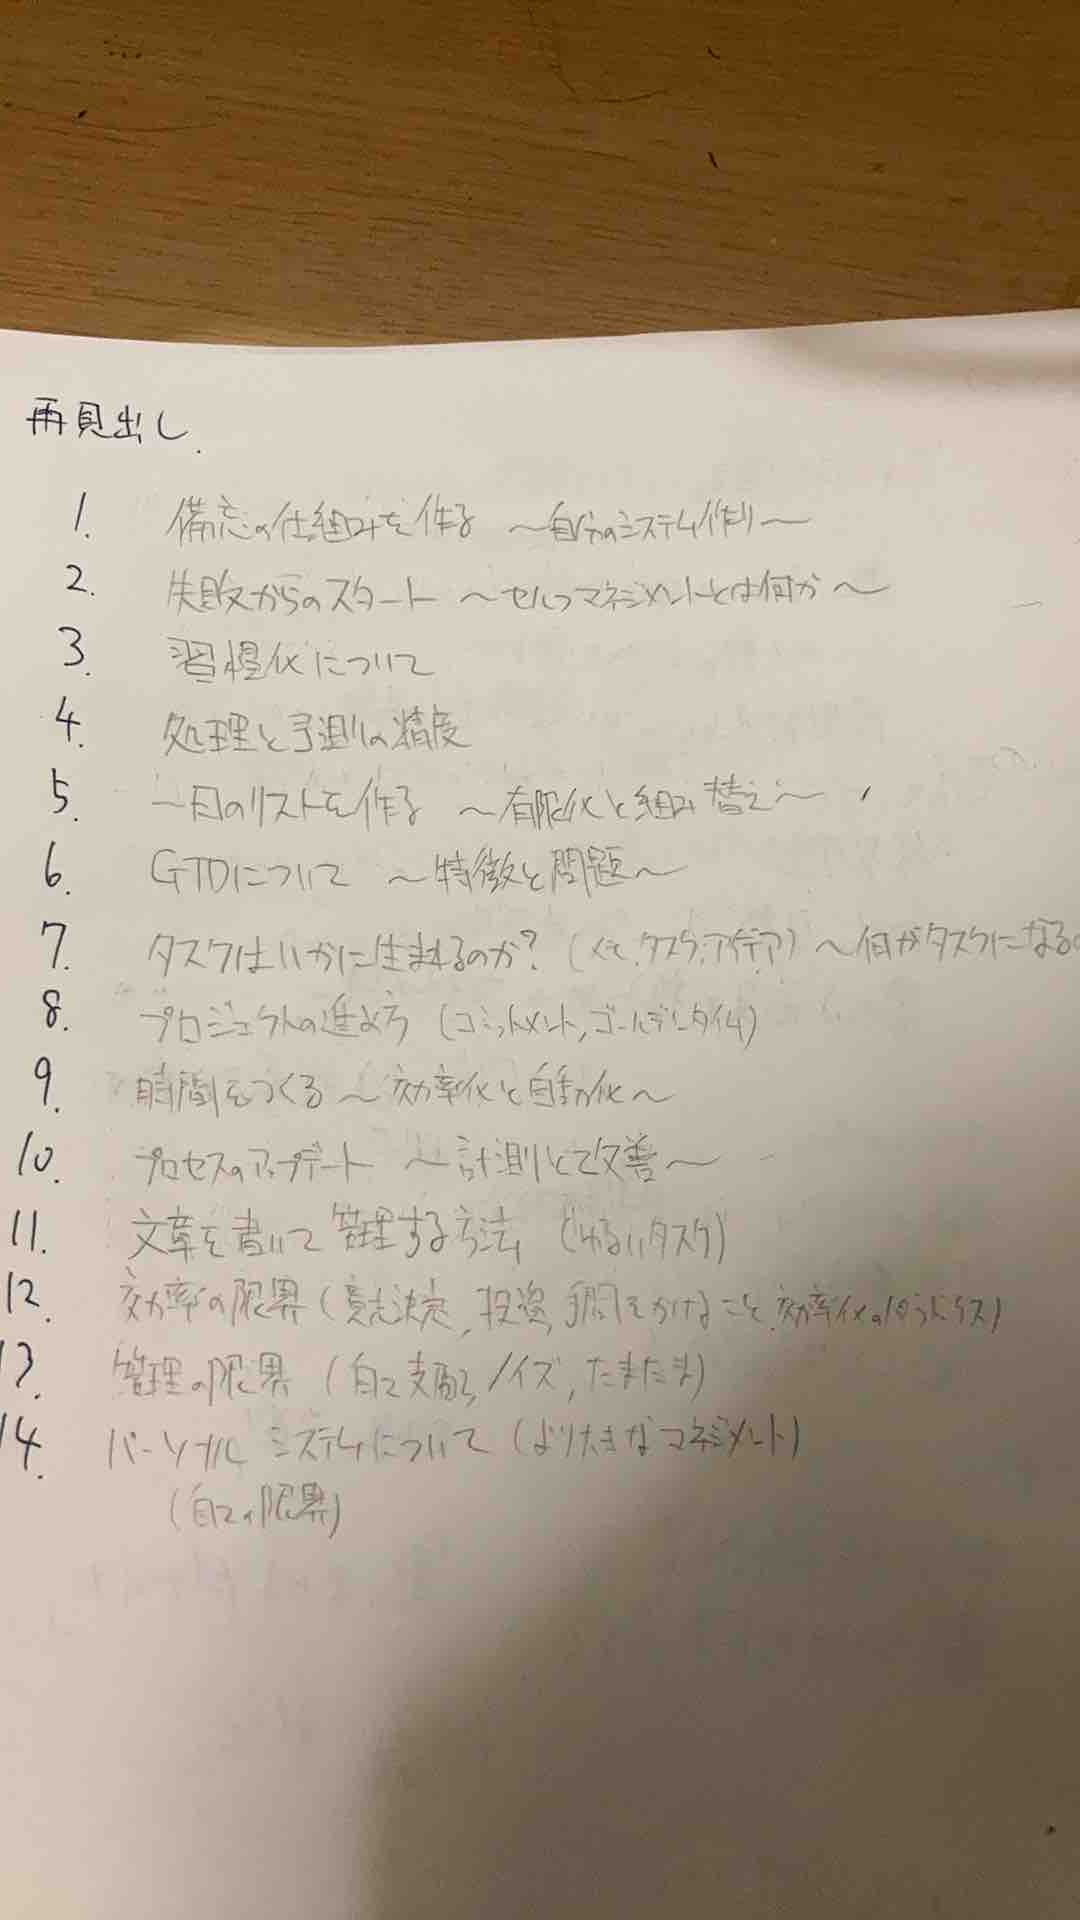 再見出し
1. 備忘の仕組みを作る 〜自分のシステム作り〜
2. 失敗からのスタート 〜セルフマネジメントとは何か〜
3. 習慣化について
4. 処理と予測の精度
5. 一日のリストを作る 〜有限化と組み替え〜
6. GTDについて 〜特徴と問題〜
7. タスクはいかに生まれるのか? (メモ,タスク,アイデア) 〜何がタスクになるの
8. プロジェクトの進め方 (コミットメント,ゴールデンタイム)
9. 時間をつくる 〜効率化と自動化〜
10. プロセスのアップデート 〜計測と改善〜
11. 文章を書いて管理する方法 (ゆるいタスク)
12. 効率の限界 (意志決定, 投資, 手間をかけること, 効率化のパラドクス)
13. 管理の限界 (自己支配, ノイズ, たまたま)
14. パーソナルシステムについて (より大きなマネジメント)
(自己の限界)